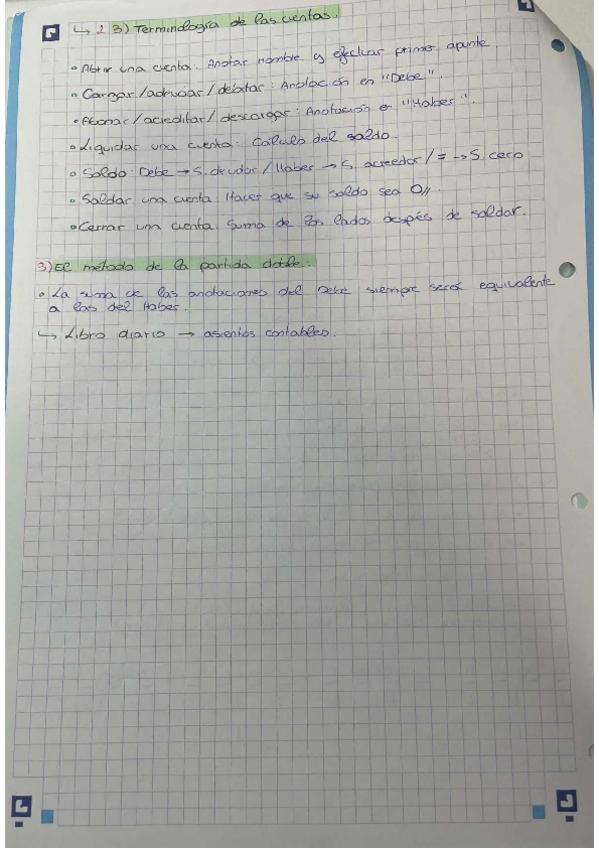 ↳ 2.3) Terminología de las cuentas.
• Abrir una cuenta: Anotar nombre y efectuar primer apunte.
• Cargar/adeudar/debitar: Anotación en "Debe".
• Abonar/acreditar/descargar: Anotación en "Haber".
• Liquidar una cuenta: Cálculo del saldo.
• Saldo: Debe → S. deudor / Haber → S. acreedor / = → S. cero
• Saldar una cuenta: Hacer que su saldo sea 0//.
• Cerrar una cuenta: Suma de los lados después de saldar.
3) El método de la partida doble.
• La suma de las anotaciones del Debe siempre será equivalente
a las del Haber.
↳ Libro diario → asientos contables.